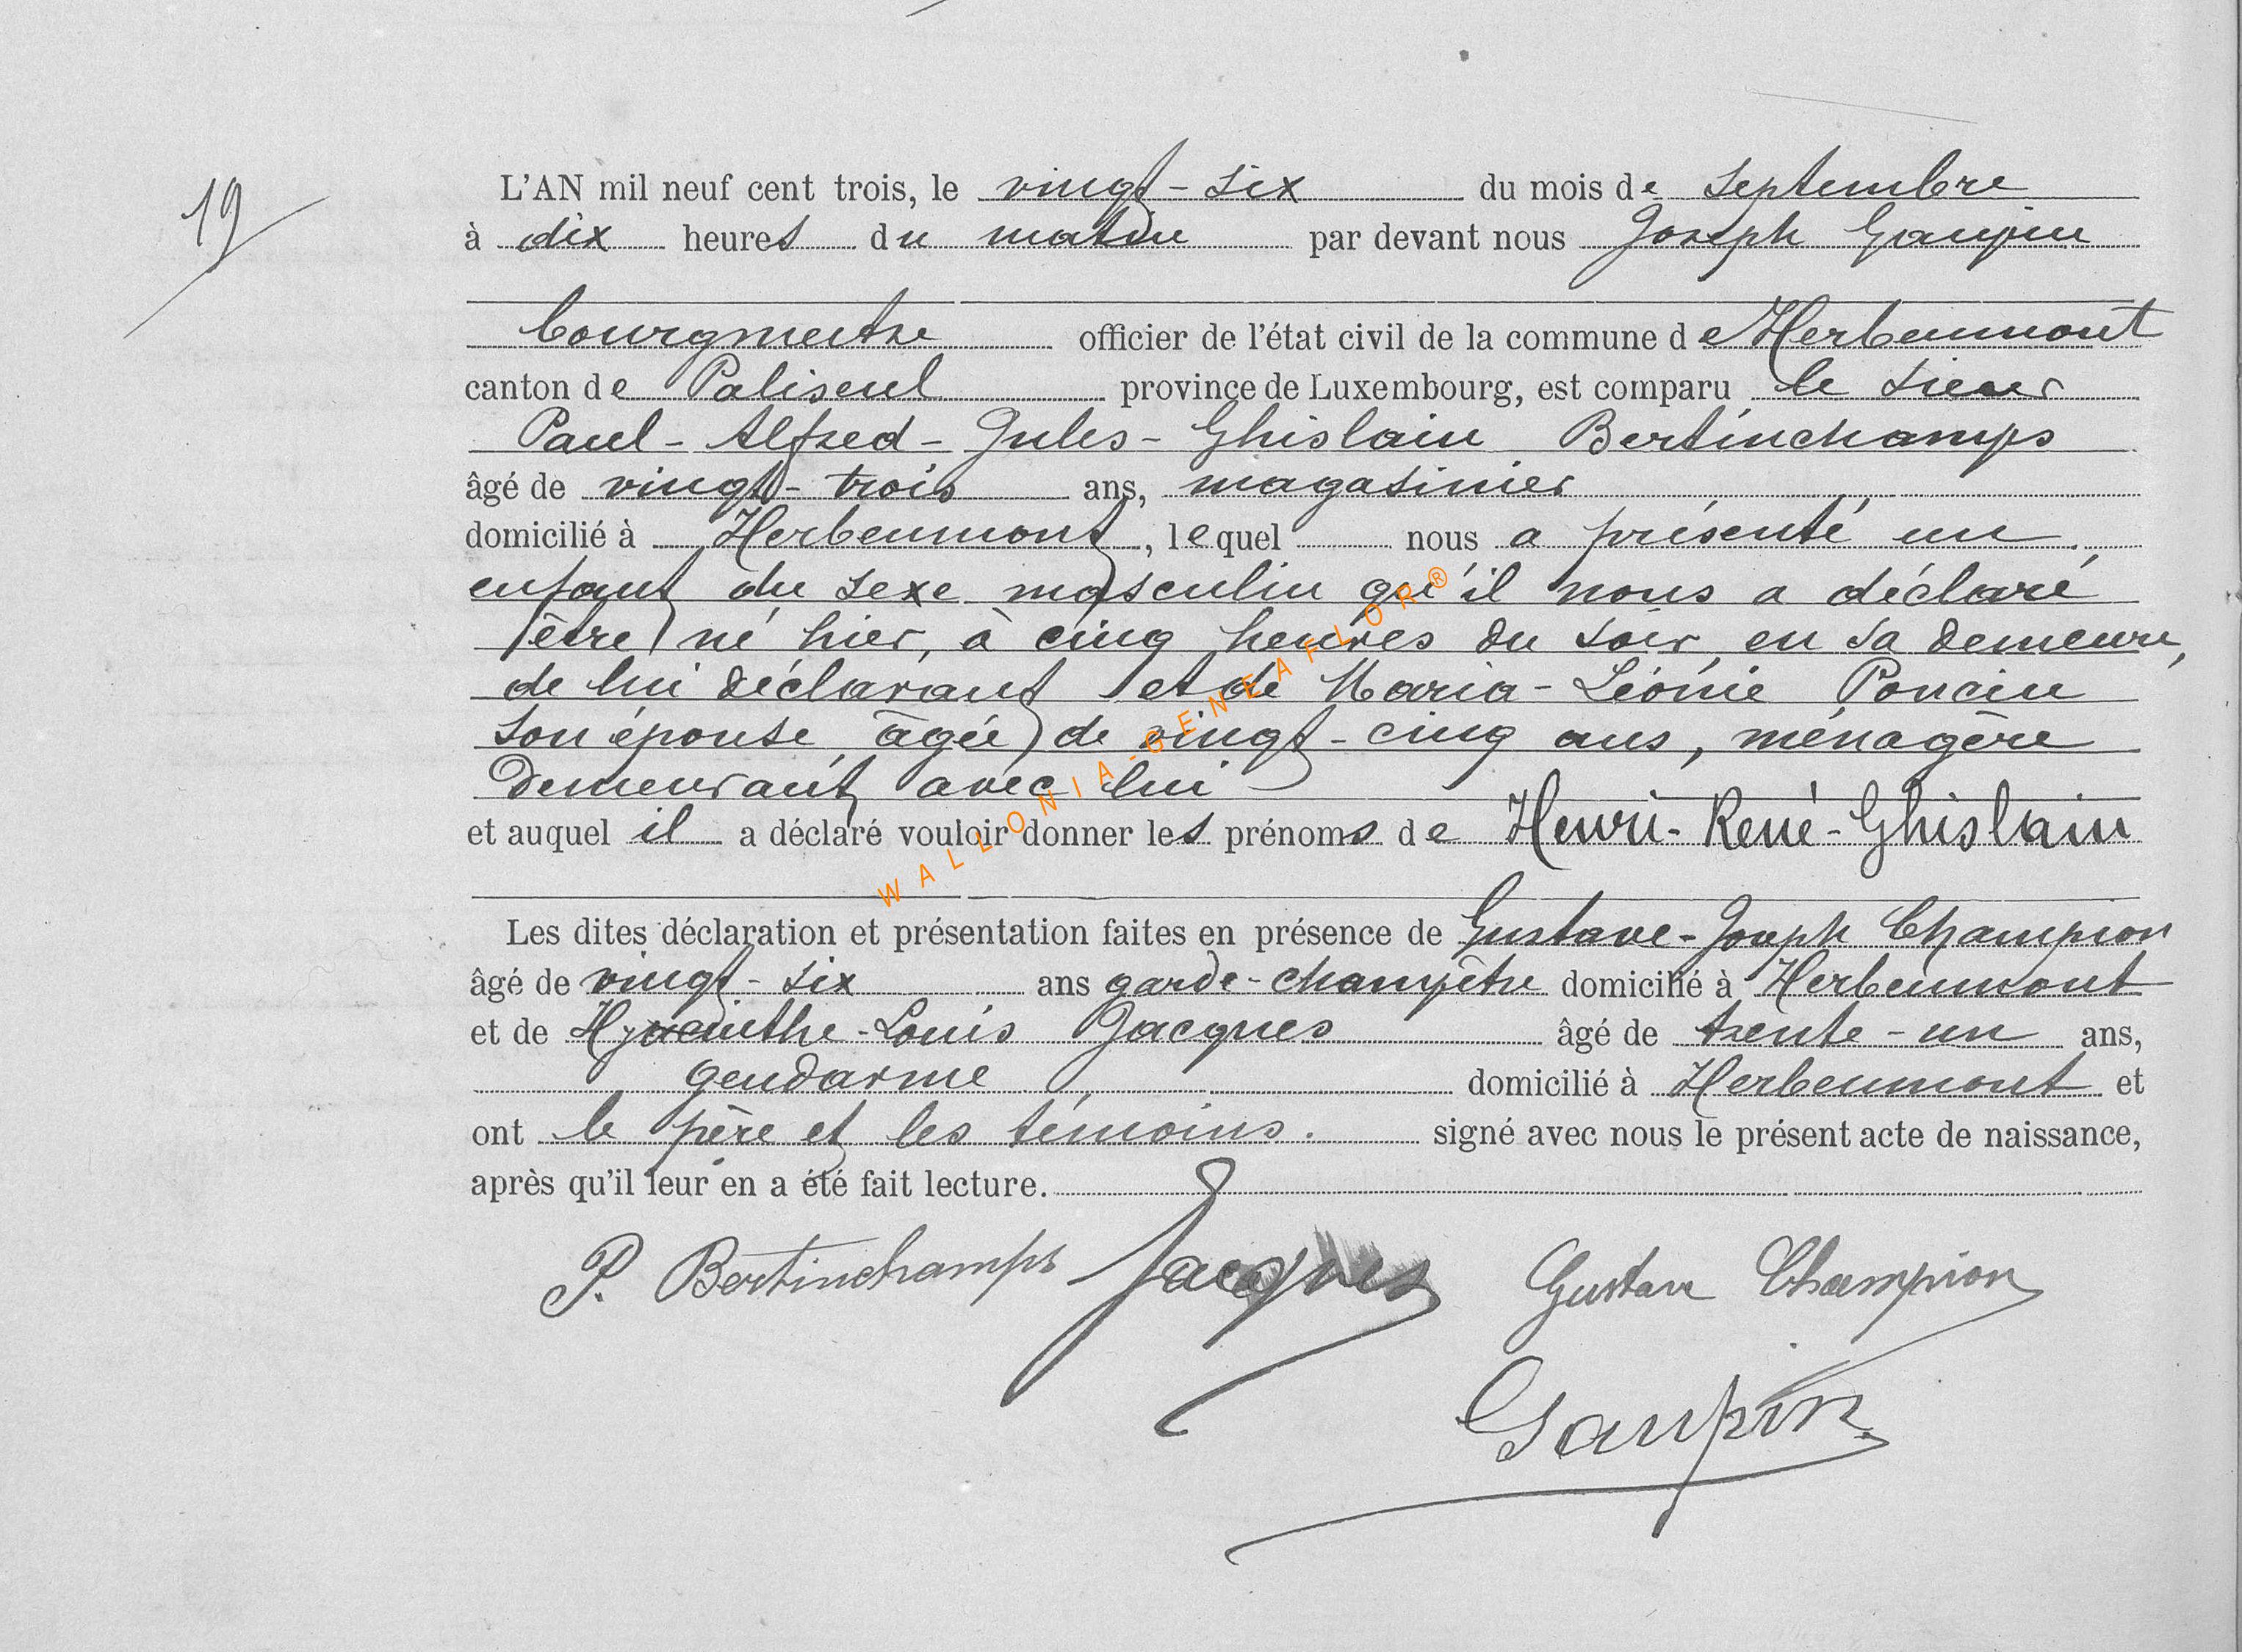 19
L'AN mil neuf cent trois, le vingt-six du mois de septembre
à dix heures du matin par devant nous Joseph Gaupin
bourgmestre officier de l'état civil de la commune de Herbeumont
canton de Paliseul province de Luxembourg, est comparu le sieur
Paul-Alfred-Jules-Ghislain Bertinchamps
âgé de vingt-trois ans, magasinier
domicilié à Herbeumont, lequel nous a présenté un
enfant du sexe masculin qu'il nous a déclaré
être né hier, à cinq heures du soir, en sa demeure,
de lui déclarant et de Maria-Léonie Poncin
son épouse, âgée de vingt-cinq ans, ménagère
demeurant avec lui
et auquel il a déclaré vouloir donner les prénoms de Henri-René-Ghislain
Les dites déclaration et présentation faites en présence de Gustave-Joseph Champion
âgé de vingt-six ans garde-champêtre domicilié à Herbeumont
et de Hyacinthe-Louis Jacques âgé de trente-un ans,
gendarme domicilié à Herbeumont et
ont le père et les témoins. signé avec nous le présent acte de naissance,
après qu'il leur en a été fait lecture.
P. Bertinchamps Jacques Gustave Champion
Gaupin
WALLONIA-GENEAFLOR®